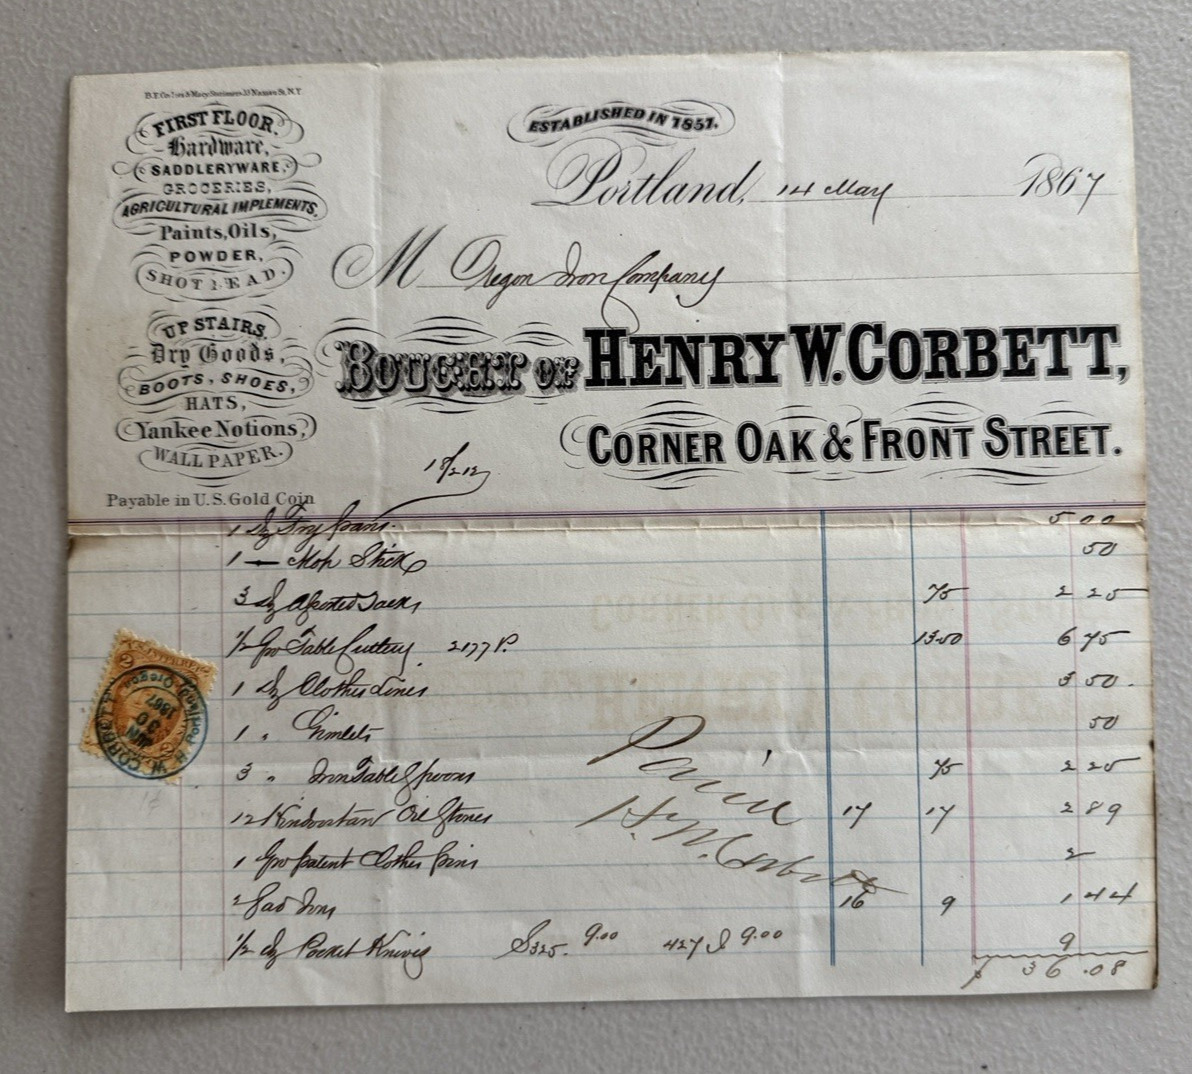 FIRST FLOOR.
Hardware,
SADDLERYWARE,
GROCERIES,
AGRICULTURAL IMPLEMENTS.
Paints, Oils,
POWDER,
SHOT LEAD.
UP STAIRS.
Dry Goods,
BOOTS, SHOES,
HATS,
Yankee Notions,
WALL PAPER.
Payable in U.S. Gold Coin
ESTABLISHED IN 1851.
Portland, 14 May 1867
M Oregon Iron Company
BOUGHT OF HENRY W. CORBETT,
CORNER OAK & FRONT STREET.
1 Dz Fry pans. 5 00
1 — Mop Stick 50
3 Dz Assorted Tacks 75 2 25
1/2 Gro Table Cutlery 2177 P. 13 50 6 75
1 Dz Clothes Lines 3 50.
1 " Gimlets 50
3 " Iron Table Spoons 75 2 25
12 Hindoostan Oil Stones 17 17 2 89
1 Gro patent Clothes pins 2
2 Sad Irons 16 9 1 44
1/2 dz Pocket Knivis S325. 9.00 427 9.00 9
$ 36.08
Paid
H. W. Corbett
H. W. CORBETT
JUN
30
1867
Portland, Oregon